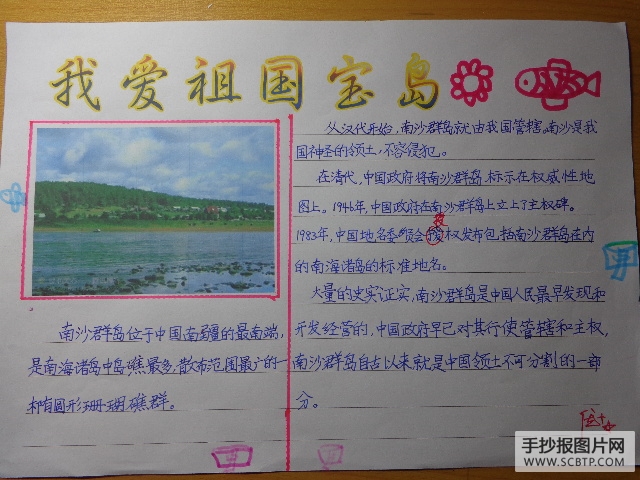 我爱祖国宝岛
从汉代开始,南沙群岛就由我国管辖。南沙是我
国神圣的领土,不容侵犯。
在清代,中国政府将南沙群岛标示在权威性地
图上。1946年,中国政府在南沙群岛上立上了主权碑。
授
1983年,中国地名委员会权发布包括南沙群岛在内
的南海诸岛的标准地名。
大量的史实证实,南沙群岛是中国人民最早发现和
开发经营的,中国政府早已对其行使管辖和主权,
南沙群岛自古以来就是中国领土不可分割的一部
分。
南沙群岛位于中国南疆的最南端,
是南海诸岛中岛礁最多,散布范围最广的一
椭圆形珊瑚礁群。
手抄报图片网
WWW.SCBTP.COM